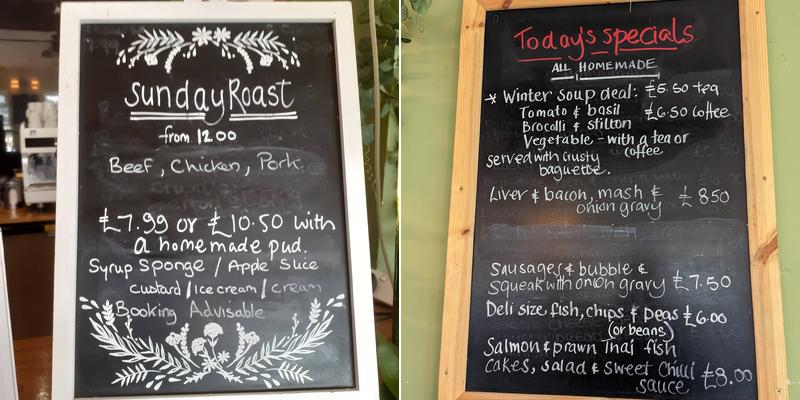 Sunday Roast
from 12.00
Beef, Chicken, Pork.
£7.99 or £10.50 with
a homemade pud.
Syrup Sponge / Apple Slice
Custard / Ice cream / cream
Booking Advisable
Today's specials
ALL HOMEMADE
* Winter soup deal: £5.50 tea
Tomato & basil £6.50 coffee
Brocolli & stilton
Vegetable - with a tea or
coffee
served with crusty
baguette.
Liver & bacon, mash &
onion gravy £ 8.50
Sausages & bubble &
squeak with onion gravy £7.50
Deli size, fish, chips & peas £6.00
(or beans)
Salmon & prawn Thai fish
cakes, salad & sweet chilli
sauce £8.00